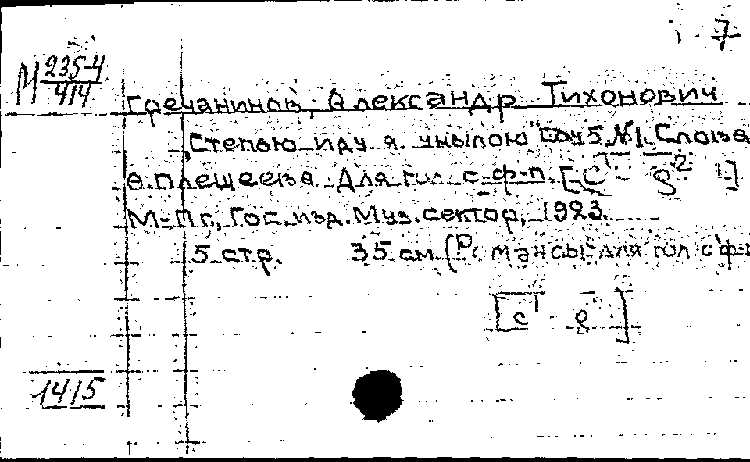 7
М 235-4
414
Гречанинов, Александр Тихонович
"Степью иду я унылою" соч 5, №1. Слова
А. Плещеева. Для гол. с ф-п. [c¹ - g² ]
М-Пг., Гос. изд. Муз. сектор, 1923.
5 стр. 35 см (Романсы для гол с ф-п
[c¹
]
1415